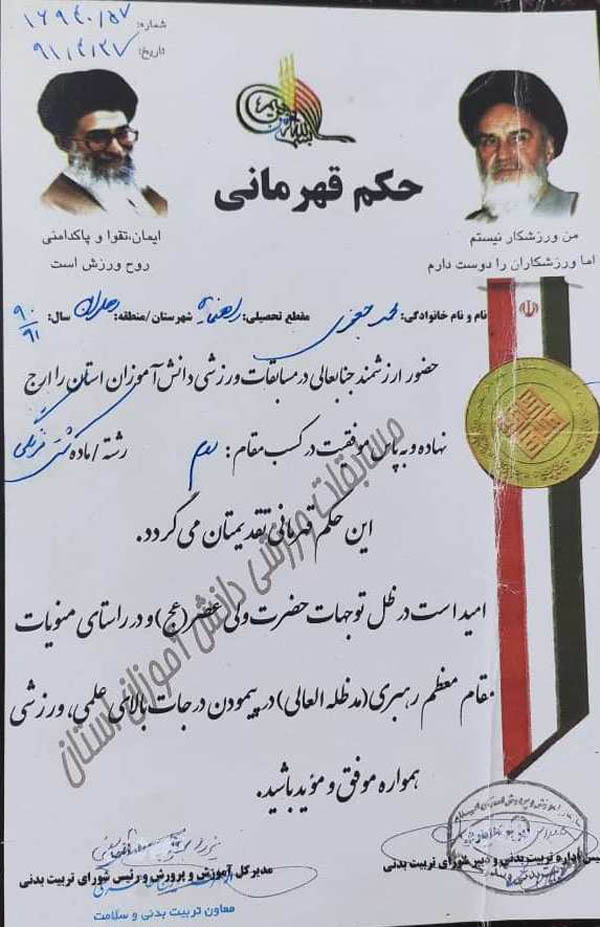 شماره: ۱۶۹۴۰/۵۷
تاریخ: ۹۱/۴/۲۷
حکم قهرمانی
من ورزشکار نیستم
اما ورزشکاران را دوست دارم
ایمان،تقوا و پاکدامنی
روح ورزش است
نام و نام خانوادگی: محمد جعفری مقطع تحصیلی: راهنمایی شهرستان/منطقه: دهلران سال: ۹۰/۹۱
حضور ارزشمند جنابعالی در مسابقات ورزشی دانش آموزان استان را ارج
نهاده و به پاس موفقیت در کسب مقام: دوم رشته/ماده کشتی فرنگی
این حکم قهرمانی تقدیمتان می گردد.
امید است در ظل توجهات حضرت ولی عصر(عج) و در راستای منویات
مقام معظم رهبری(مدظله العالی) در پیمودن درجات بالای علمی، ورزشی
همواره موفق و مؤید باشید.
مسابقات ورزشی دانش آموزان استان
ئیس اداره تربیت بدنی و دبیر شورای تربیت بدنی
مدیر کل آموزش و پرورش و رئیس شورای تربیت بدنی
معاون تربیت بدنی و سلامت